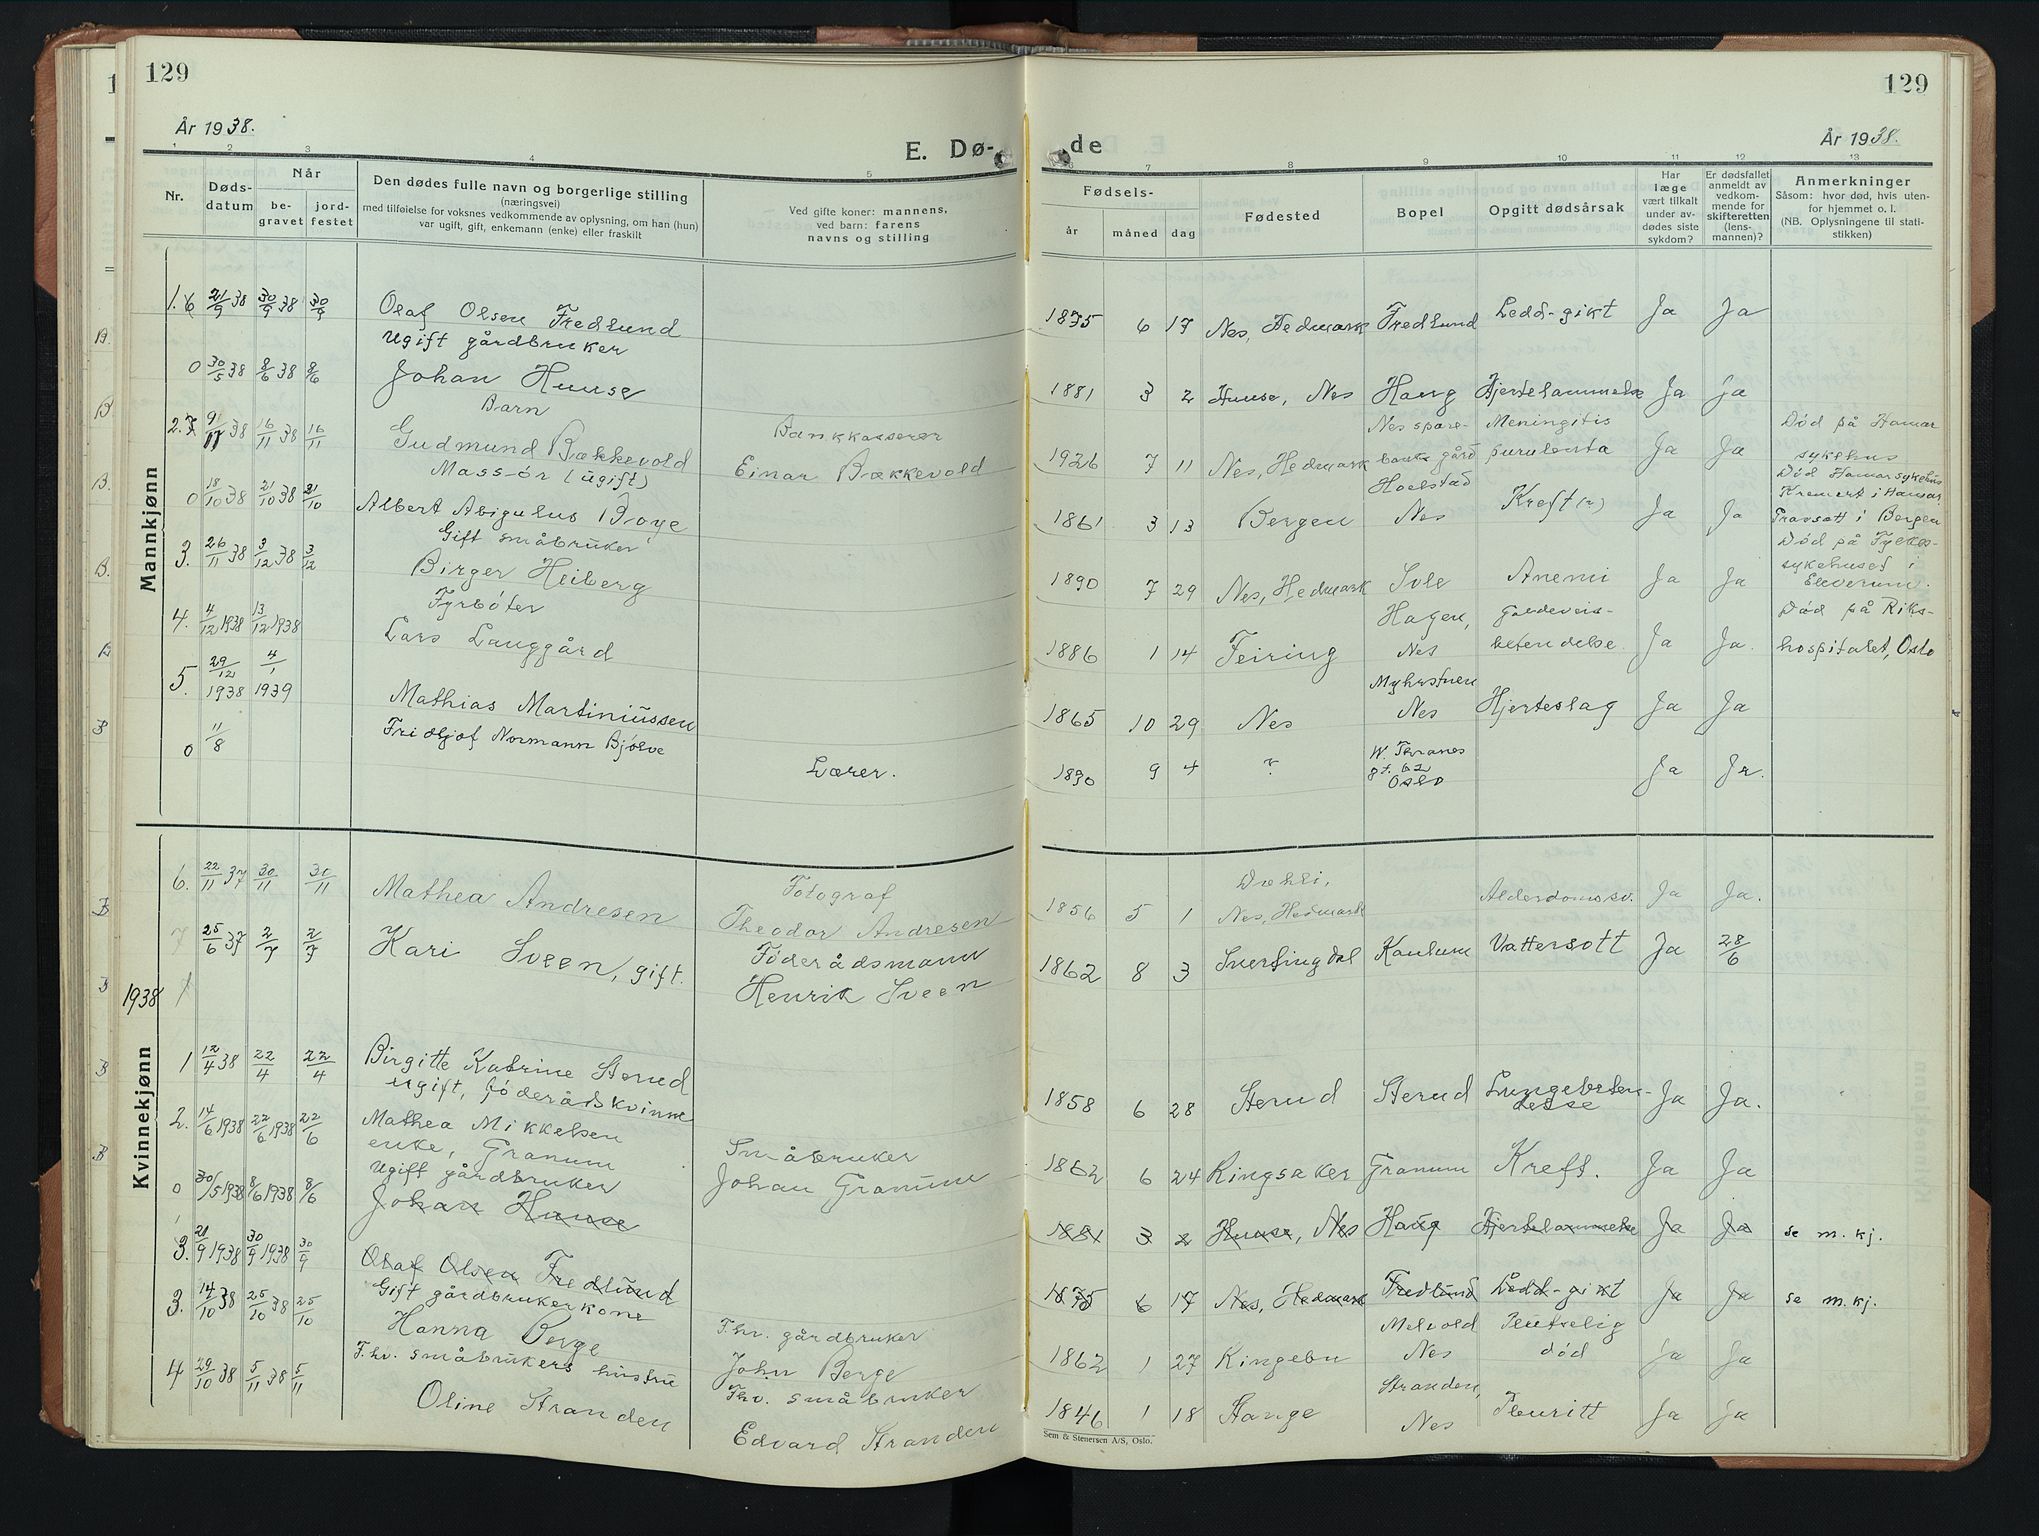 129
129
År 1938.
År 1938.
E. Dø-
de
1 2 3 4 5 7 8 9 10 11 12 13
Nr.
Døds-
datum
Når
be-
gravet
jord-
festet
Den dødes fulle navn og borgerlige stilling
(næringsvei)
med tilføielse for voksnes vedkommende av oplysning, om han (hun)
var ugift, gift, enkemann (enke) eller fraskilt
Ved gifte koner: mannens,
ved barn: farens
navns og stilling
Fødsels-
år måned dag
Fødested
Bopel
Opgitt dødsårsak
Har
læge
vært tilkalt
under av-
dødes siste
sykdom?
Er dødsfallet
anmeldt av
vedkom-
mende for
skifteretten
(lens-
mannen)?
Anmerkninger
Såsom: hvor død, hvis uten-
for hjemmet o. l.
(NB. Oplysningene til stati-
stikken)
Mannkjønn
1. 21/9 38 30/9 38 30/9 Olaf Olsen Fredlund 1875 6 17 Nes, Hedmark Fredlund Ledd-gikt Ja Ja
Ugift gårdbruker
0 30/5 38 8/6 38 8/6 Johan Huuse 1881 3 2 Huuse, Nes Haug Hjertelammelse Ja Ja
Barn
2. 9/11 38 16/11 38 16/11 Gudmund Bækkevold Bankkasserer Einar Bækkevold 1926 7 11 Nes, Hedmark Nes spare-
bank gård Meningitis
purulenta Ja Ja Død på Hamar
sykehus
Massør (ugift)
0 18/10 38 21/10 38 21/10 Albert Abigulus Boye 1861 3 13 Bergen Hoelstad
Nes Kreft (?) Ja Ja Død Hamar sykehus
Kremert i Hamar
i Bergen
Gift småbruker
3. 26/11 38 3/12 38 3/12 Birger Heiberg 1890 7 29 Nes, Hedmark Svle Anemi Ja Ja Død på Fylkes-
sykehuset i
Elverum.
Fyrbøter
4. 4/12 1938 13/12 1938 Lars Langgård 1886 1 14 Feiring Hagen,
Nes Galdeveis-
betendelse. Ja Ja. Død på Riks-
hospitalet, Oslo
5. 29/12 1938 4/1 1939 Mathias Martiniussen 1865 10 29 Nes Nes Hjerteslag Ja Ja
0 11/8 Fridtjof Normann Bjølve Lærer. 1890 9 4 ? W. Thranes
gt. 62
Oslo Ja Ja.
Kvinnekjønn
6. 22/11 37 30/11 30/11 Mathea Andresen Fotograf
Theodor Andresen 1856 5 1 Dæhli,
Nes, Hedmark Alderdomssv. Ja Ja.
7 25/6 37 2/7 2/7 Kari Sveen, gift. Føderådsmann
Henrik Sveen 1862 8 3 Kaulum Vattersott Ja 28/6
1938
1 12/4 38 22/4 22/4 Birgitte Katrine Sterud
ugift, føderådskvinne 1858 6 28 Sterud Sterud Lungebeten-
delse Ja Ja.
2. 14/6 1938 22/6 1938 22/6 Mathea Mikkelsen
enke, Granum Småbruker
Johan Granum 1862 6 24 Ringsaker Granum Kreft. Ja Ja
Ugift gårdbruker
0 30/5 1938 8/6 1938 8/6 Johan Huuse 1881 3 2 Huuse, Nes Haug Hjertelammelse Ja Ja se m. kj.
3. 21/9 1938 30/9 1938 30/9 Olaf Olsen Fredlund 1875 6 17 Nes, Hedmark Fredlund Ledd-gikt Ja Ja se m. kj.
Gift gårdbrukerkone
3. 14/10 38 25/10 38 25/10 Hanna Berge Fhv. gårdbruker
John Berge 1862 1 27 Ringebu Melvold
Nes Plutselig
død Ja Ja
Fhv. småbrukers hustru
4 29/10 38 5/11 38 5/11 Oline Stranden Fhv. småbruker
Edvard Stranden 1846 1 18 Stange Stranden,
Nes Pleuritt Ja Ja
Sem & Stenersen A/S, Oslo.